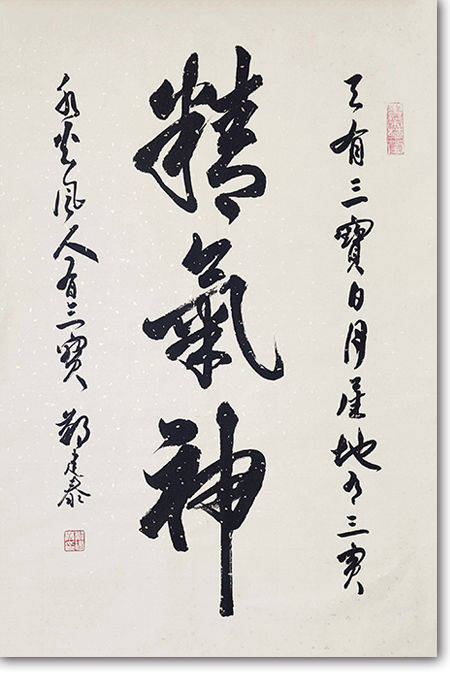 天有三寶日月星地有三寶
精氣神
水火風人有三寶